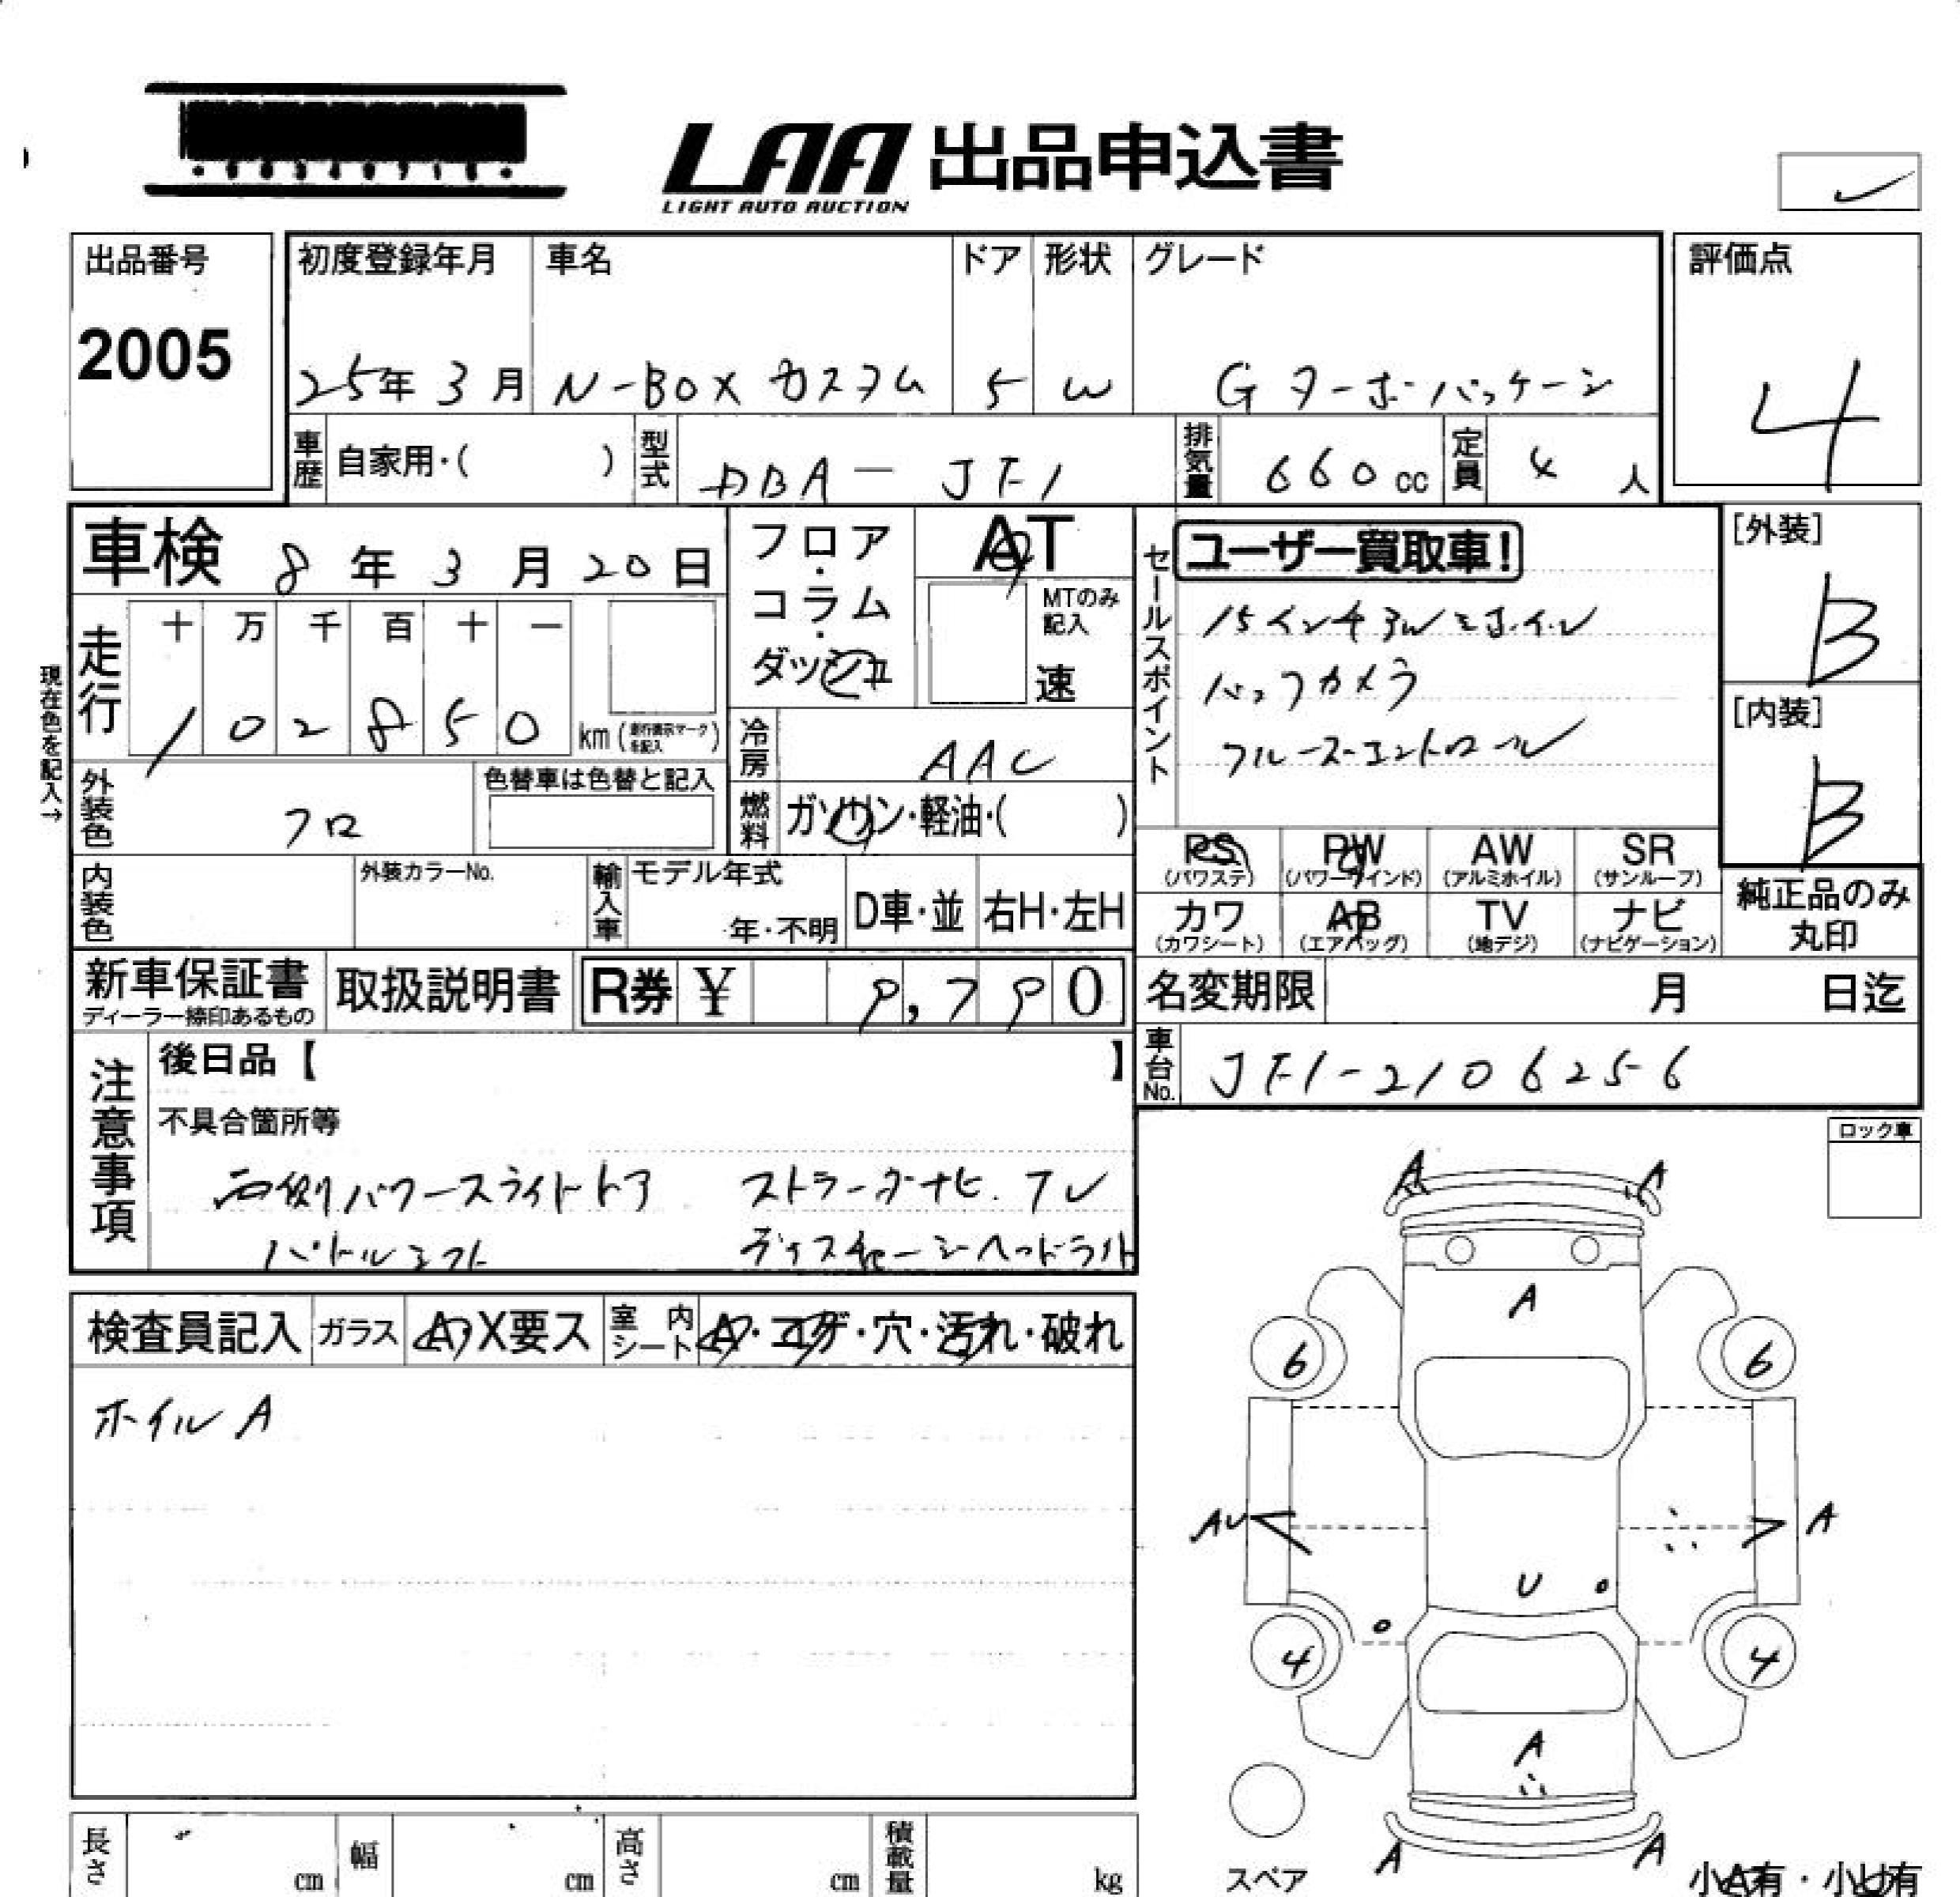 LAA 出品申込書
LIGHT AUTO AUCTION
出品番号
2005
初度登録年月 車名 ドア 形状 グレード
25年 3月 N-BOX カスタム 5 W G ターボ パッケージ
評価点
4
車歴 自家用・( ) 型式 DBA-JF1 排気量 660 cc 定員 4 人
車検 8年 3月 20日
フロア・コラム・ダッシュ
AT
MTのみ記入
速
走行 十 万 千 百 十 一
1 0 2 8 5 0 km (走行表示マークを記入)
現在色を記入→
冷房 AAC
外装色 クロ
色替車は色替と記入
燃料 ガソリン・軽油・( )
内装色
外装カラーNo.
輸入車 モデル年式
年・不明 D車・並 右H・左H
セールスポイント
ユーザー買取車!
15インチアルミホイル
バックカメラ
クルーズコントロール
[外装]
B
[内装]
B
PS (パワステ) PW (パワーウインド) AW (アルミホイル) SR (サンルーフ)
カワ (カワシート) AB (エアバッグ) TV (地デジ) ナビ (ナビゲーション)
純正品のみ丸印
新車保証書
ディーラー捺印あるもの
取扱説明書
R券 ¥ 9,790
名変期限 月 日迄
車台No. JF1-2106256
注意事項
後日品【 】
不具合箇所等
両側パワースライドドア ストラーダナビ.TV
パドルシフト ディスチャージヘッドライト
ロック車
検査員記入 ガラス A・X要ス 室内シート A・コゲ・穴・汚れ・破れ
ホイル A
A A
A
6 6
AU A
U
4 4
A
A A
スペア
小A有・小U有
長さ cm 幅 cm 高さ cm 積載量 kg